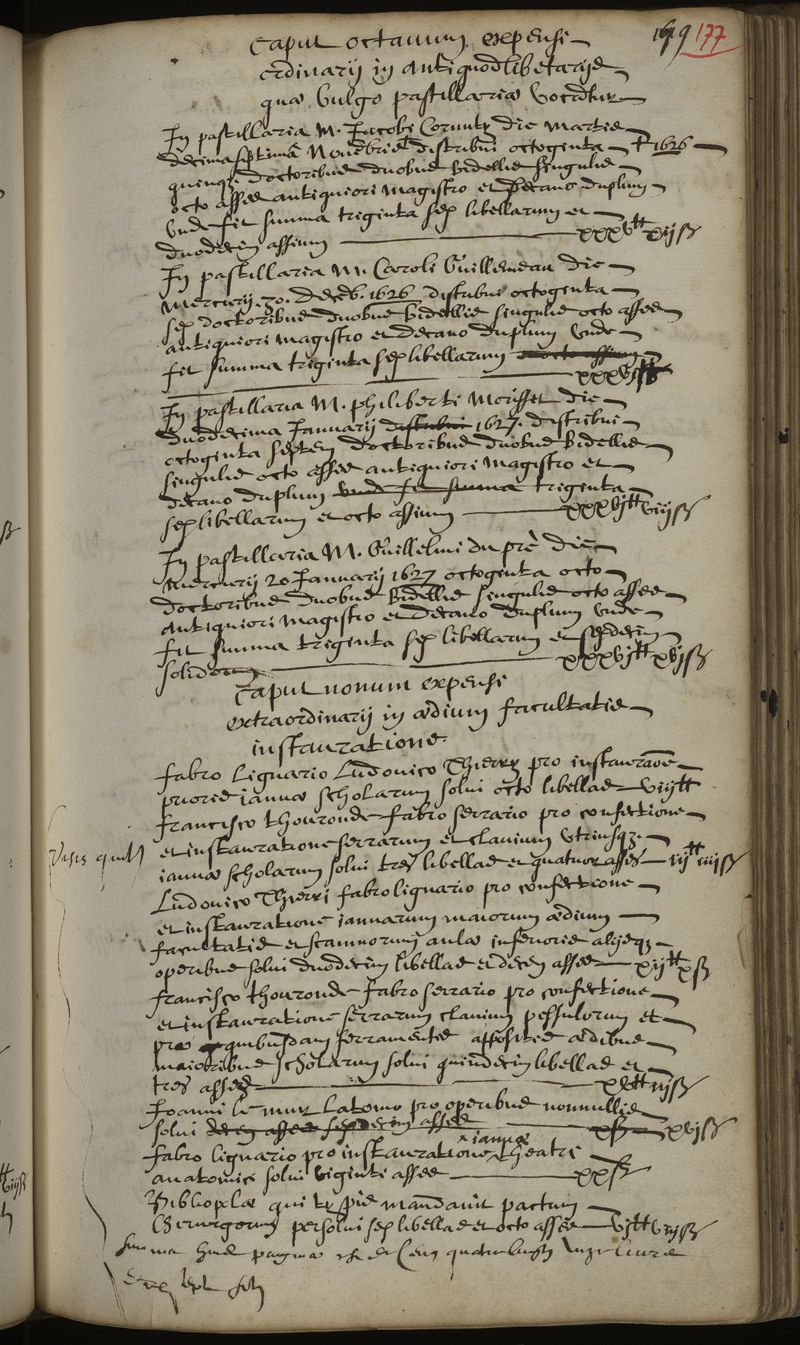 177
Caput octauum expensæ
ordinarij in Antiquodlibetarijs
quæ vulgo pastillariæ vocantur
In pastillaria M. Jacobi Cornuty die Martis
decima septima Nouẽbris distribui octogenta † 1626
quinqz doctoribus duobus Bidellis singulis
octo asses antiquiori magistro et decano duplum
vnde fit summa triginta sex libellarum et
duodecim assium xxxvjtt xijß
In pastillaria M. Caroli Guillemeau die
mercurij 30. decẽb. 1626 distribui octogenta
sex doctoribus duobus Bidellis singulis octo asses
antiquiori magistro et decano duplum vnde
fit summa triginta sex libellarum et octo assium
xxxvjtt
In pastillaria M. philiberti Morisset die
duodecima Januarij distribui 1627. distribui
octogenta septem doctoribus duobus Bidellis
singulis octo asses antiquiori magistro et
decano duplum vnde fit summa triginta
sex libellarum et octo assium xxxvjtt viijß
In pastillaria M. Guillelmi du prè die
mercurij 20 Januarij 1627 octogenta octo
doctoribus duobus Bidellis singulis octo asses
Antiquiori magistro et decano duplum vnde
fit summa triginta sex libellarum et sexdecim
solidorum xxxvjtt xvjß
Caput nonum expensæ
extraordinarij in ædium facultatis
instauratione
fabro lignario Ludouico Thierry pro instauraõne
prioris ianuæ scholarum solui octo libellas viijtt
francisco thouronde fabro serrario pro confectione
et instauratione serrarum et clauium vtriusqz
ianuæ scholarum solui tres libellas et quatuor asses iijtt iiijß
Ludouico Thierri fabro lignario pro confectione
et instauratione ianuarum maiorum ædium
facultatis et scamnorum aulæ inferioris alijsqz
operibus solui duodecim libellas et decem asses xijtt xß
francisco thouronde fabro serrario pro confectione
et instauratione serrarum clauium pessulorum et
pro quibusdam ferramentis appositis ædibus
maioribus scholarum solui quindecim libellas et
tres asses xvtt iijß
Joanni le mur Latomo pro operibus nonnullis
solui decem asses sexdecim asses xß xvjß
fabro lignario pro instauratione ^ianuæ theatri
anatomici solui viginti asses xxß
Bibliopolæ qui typis mandauit pactum
Chirurgorum persolui sex libellas et octo asses vjtt viijß
Summa huius paginæ